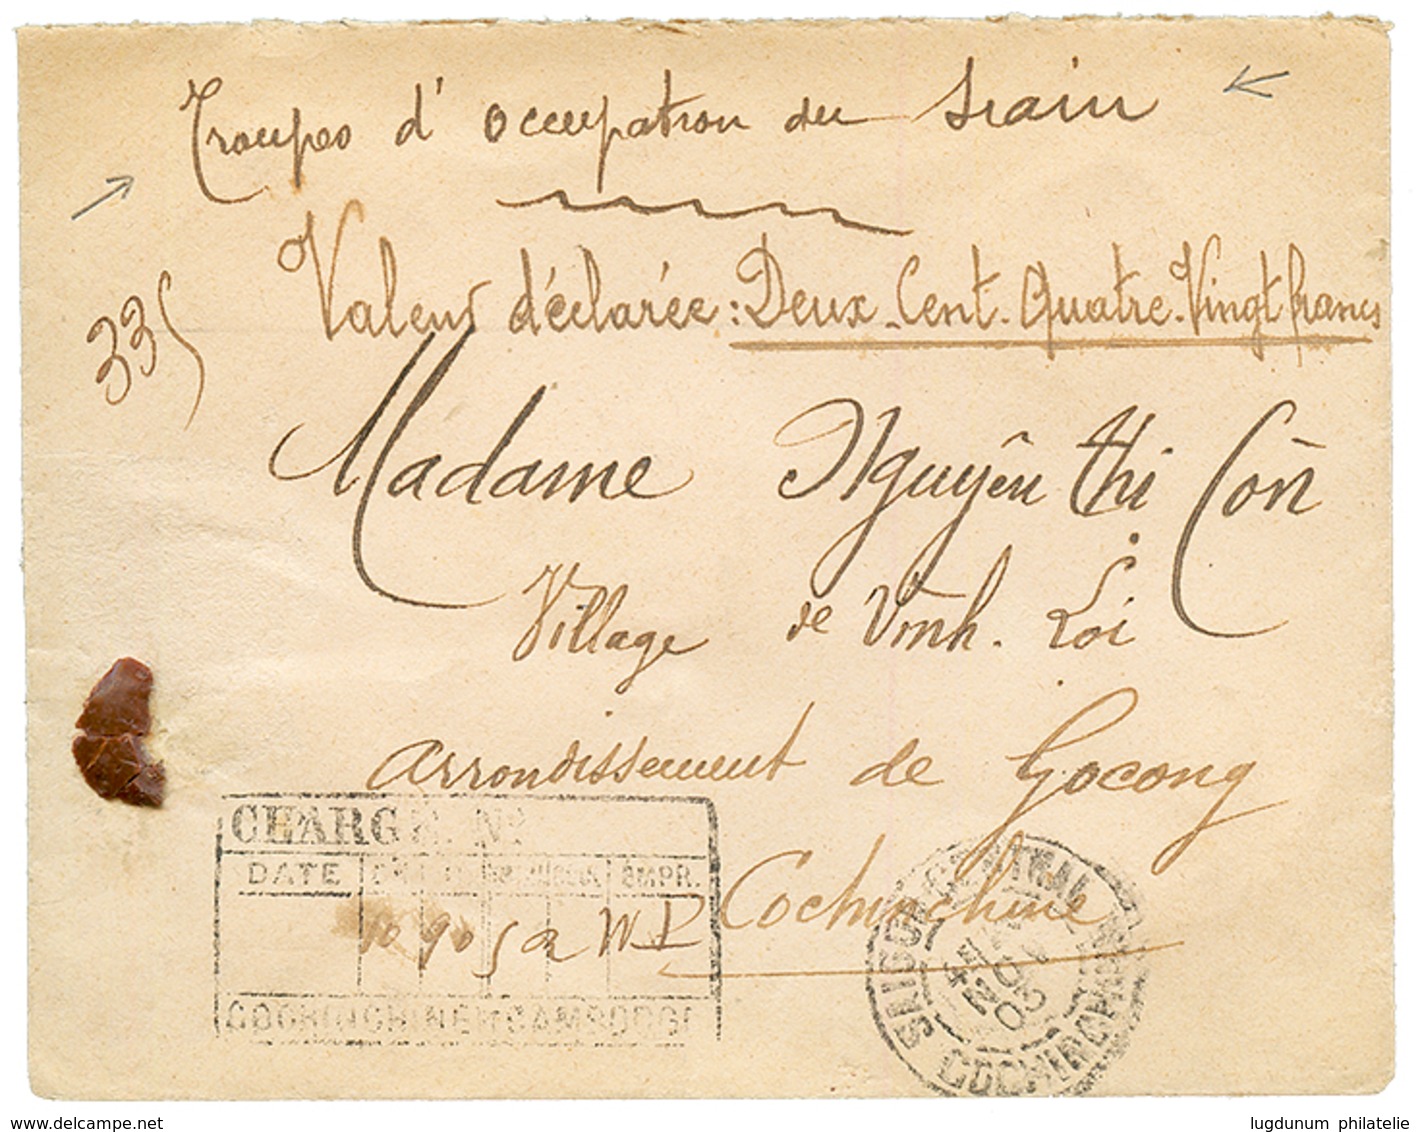 Troupes d'occupation du Siam
Valeur déclarée : Deux-Cent-Quatre-Vingt francs
335
Madame Nguyên thi Côn
Village de Vinh-Loi
arrondissement de Gocong
Cochinchine
CHARGÉ. Nº
DATE EMPR.
COCHINCHINE ET CAMBODGE
SAIGON CENTRAL
NOV
03
COCHINCHINE
www.delcampe.net
lugdunum philatelie